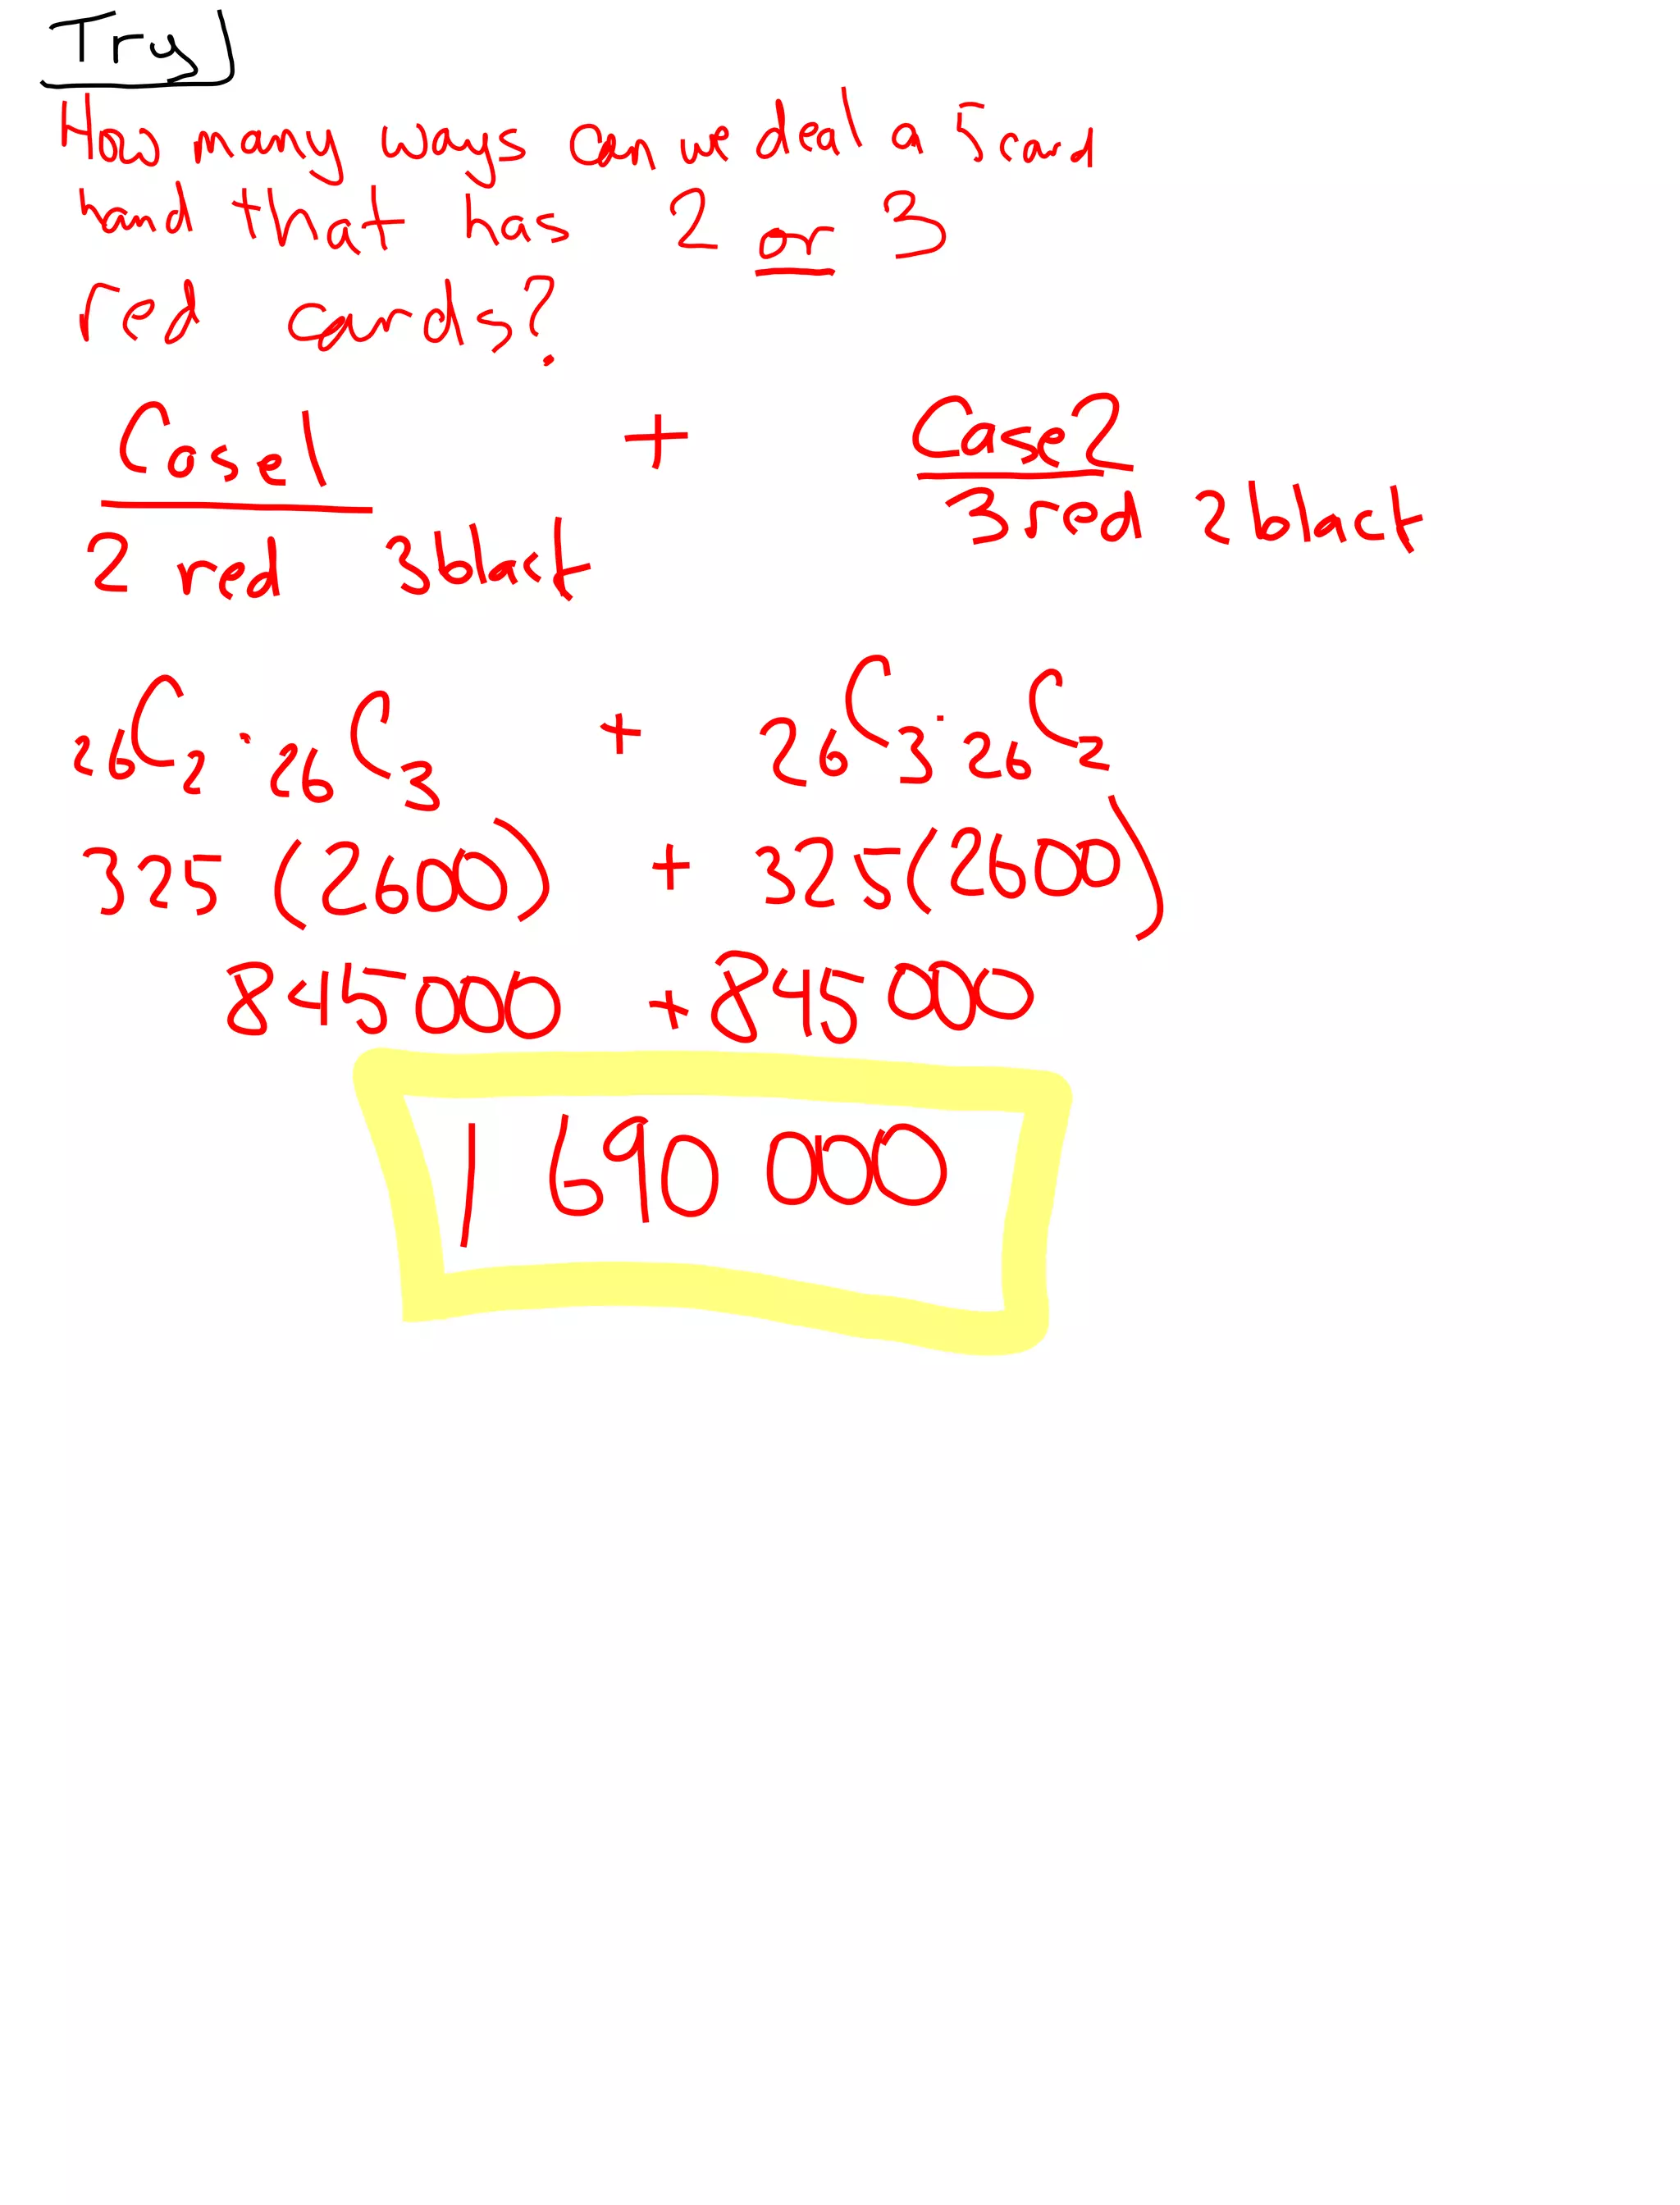 Try
How many ways can we deal a 5 card
hand that has 2 or 3
red cards?
Case 1 + Case 2
2 red 3 black 3 red 2 black
26C2 · 26C3 + 26C3 · 26C2
325 (2600) + 325 (2600)
845000 + 845 000
1 690 000